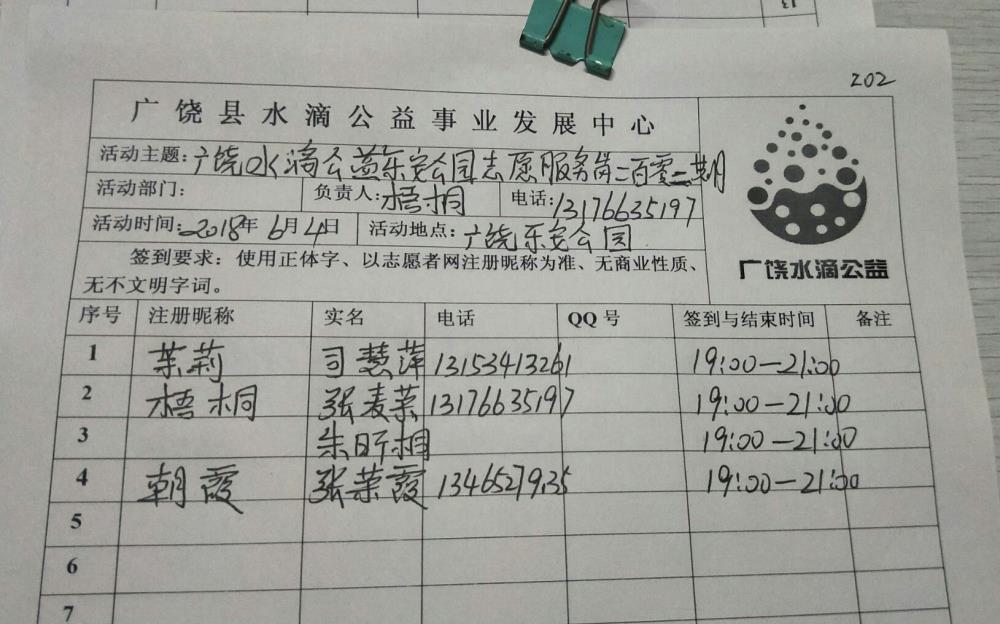 13
202
广饶县水滴公益事业发展中心
活动主题:广饶水滴公益乐安公园志愿服务岗二百零二期
活动部门: 负责人:梧桐 电话:13176635197
活动时间:2018年6月4日 活动地点:广饶乐安公园
签到要求：使用正体字、以志愿者网注册昵称为准、无商业性质、
无不文明字词。
广饶水滴公益
序号 注册昵称 实名 电话 QQ号 签到与结束时间 备注
1 茉莉 司慧萍 13153413261 19:00—21:00
2 梧桐 张麦荣 13176635197 19:00—21:00
3 朱昕相 19:00—21:00
4 朝霞 张荣霞 19:00—21:00
5
6
7